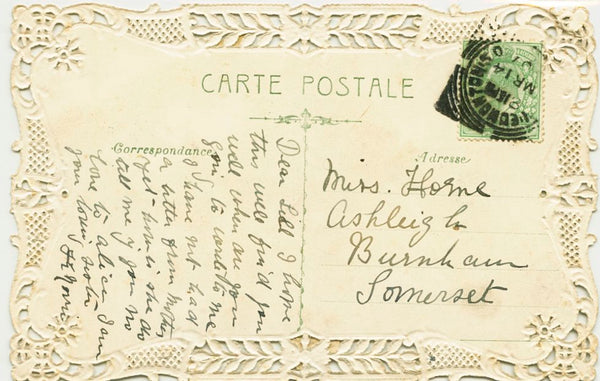 CARTE POSTALE
Correspondance
Adresse
Dear Lill I hope
this will find you
well when are you
going to write to me
I have not had
a letter from Mother
yet how is she do
tell me if you no
love to alice I am
your loving sister
Miss. Horne
Ashleigh
Burnham
Somerset
MR 14
07